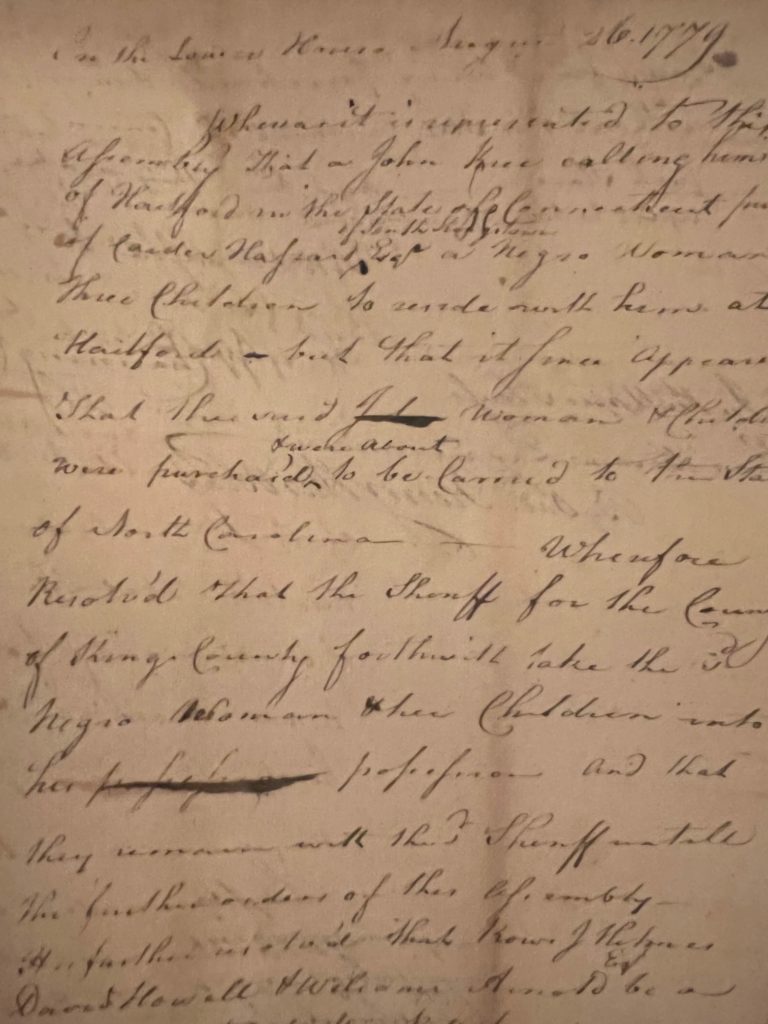 In the Lower House August 26. 1779
Whereas it is represented to this
Assembly that a John Rice calling hims
of Hartford in the State of Connecticut pur
of South Kingstown
of Carder Hassard, Esqr a Negro Woman
three Children to reside with him at
Hartford - but that it since Appears
That the said Woman & Childr
& were about
were purchas'd to be Carried to the Sta
of North Carolina — Wherefore
Resolv'd that the Sheriff for the Coun
of Kings County forthwith take the sd
Negro Woman & her Children into
his possession and that
they remain with the sd Sheriff untill
the further orders of this Assembly—
It is further resolv'd that Rowse J Helmes
Esqr
David Howell & William Arnold be a